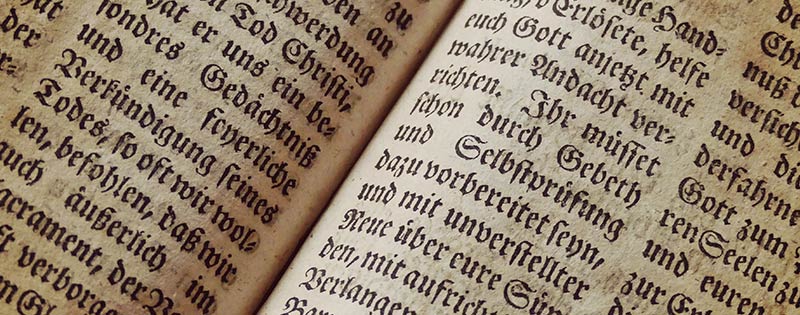 zu
an
Tod Christi,
hat er uns ein be=
sondres Gedächtniß
und eine feyerliche
Verkündigung seines
Todes, so oft wir wol=
len, befohlen, daß wir
auch äußerlich im
der
verborge
Hand=
Erlösete, helfe
euch Gott anjetzt mit
wahrer Andacht ver=
richten. Ihr müsset
schon durch Gebeth
und Selbstprüfung
dazu vorbereitet seyn,
und mit unverstellter
Reue über eure Sün
den, mit aufricht
Verlangen
Chri
nuß
versich
und die
derfahrne
Gott zum
ren Seelen zu
und euren
zur